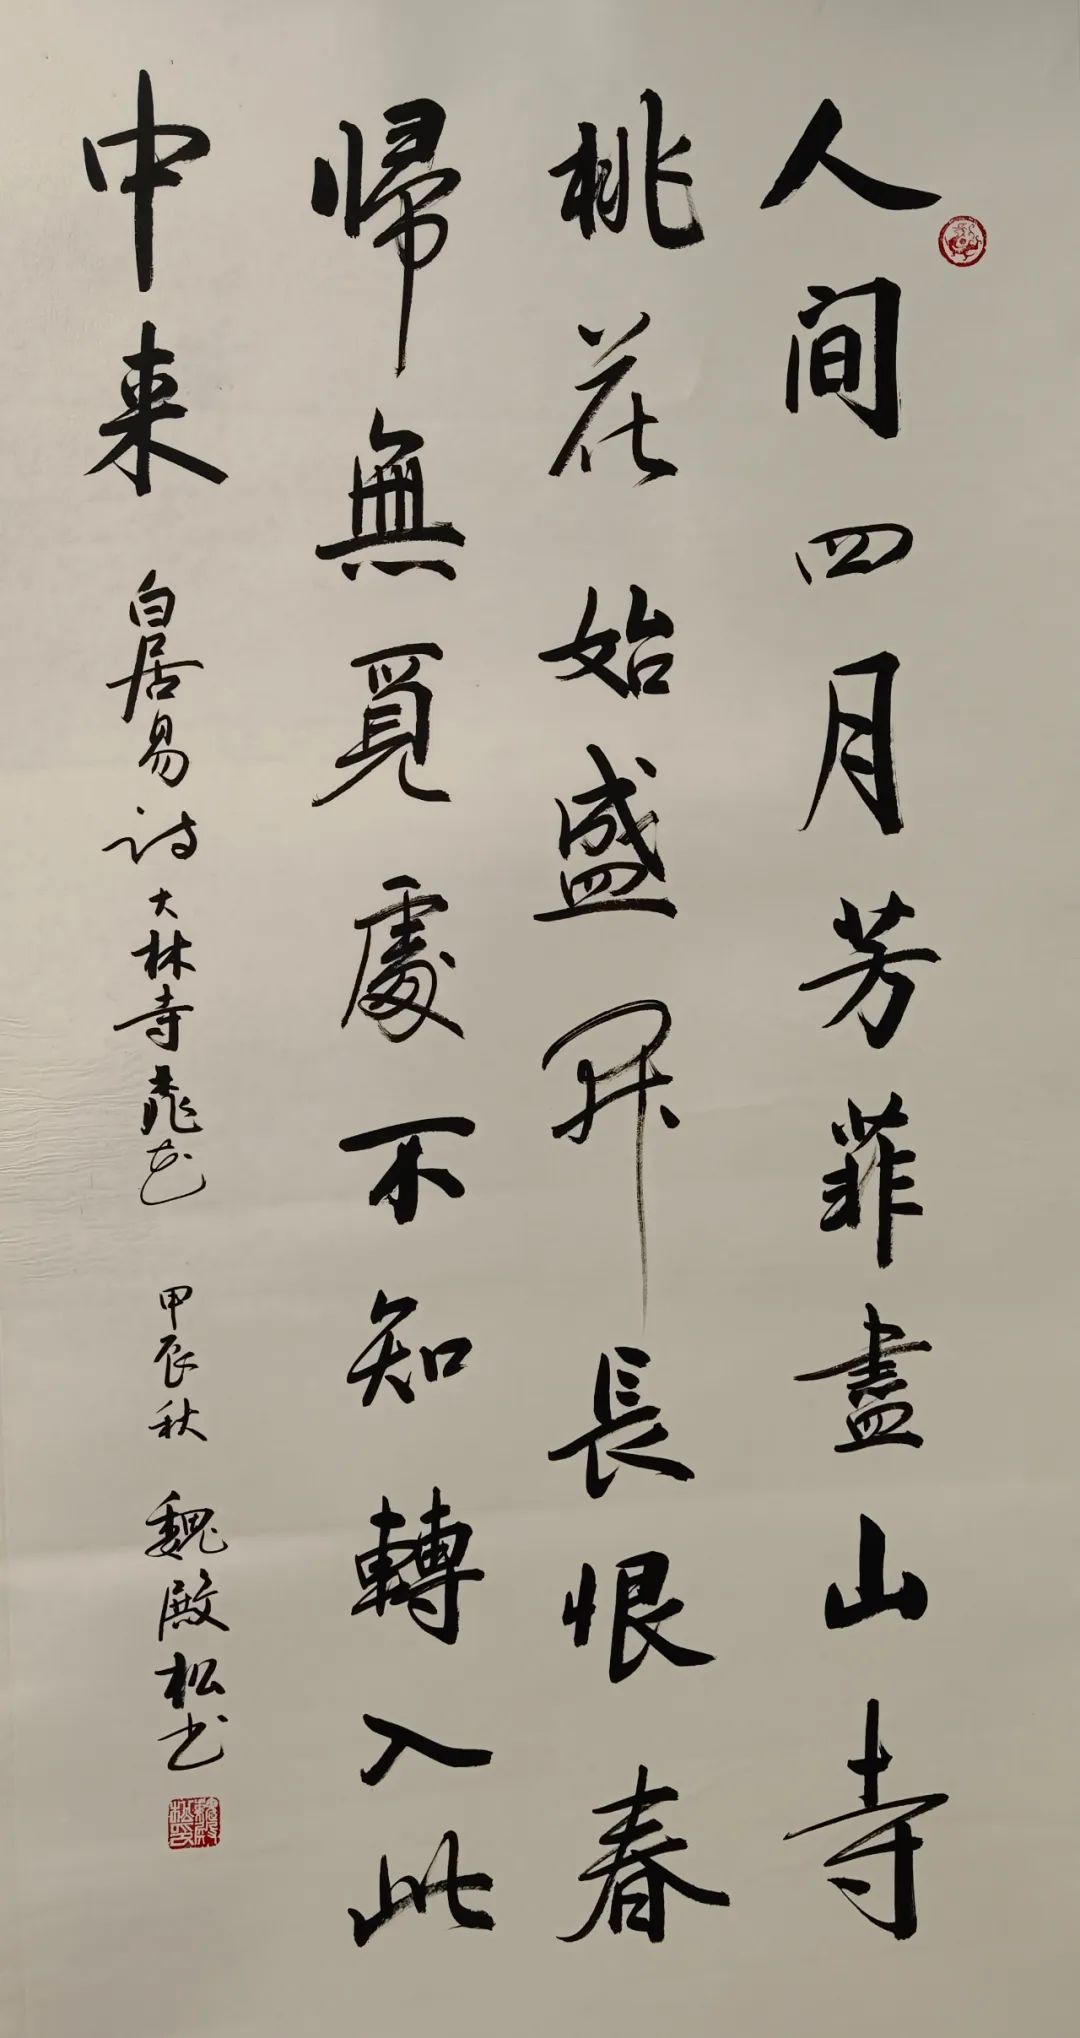 人间四月芳菲盡山寺
桃花始盛開長恨春
帰無覓處不知轉入此
中来
白居易诗大林寺桃花
甲辰秋
魏殿松书
魏殿松印